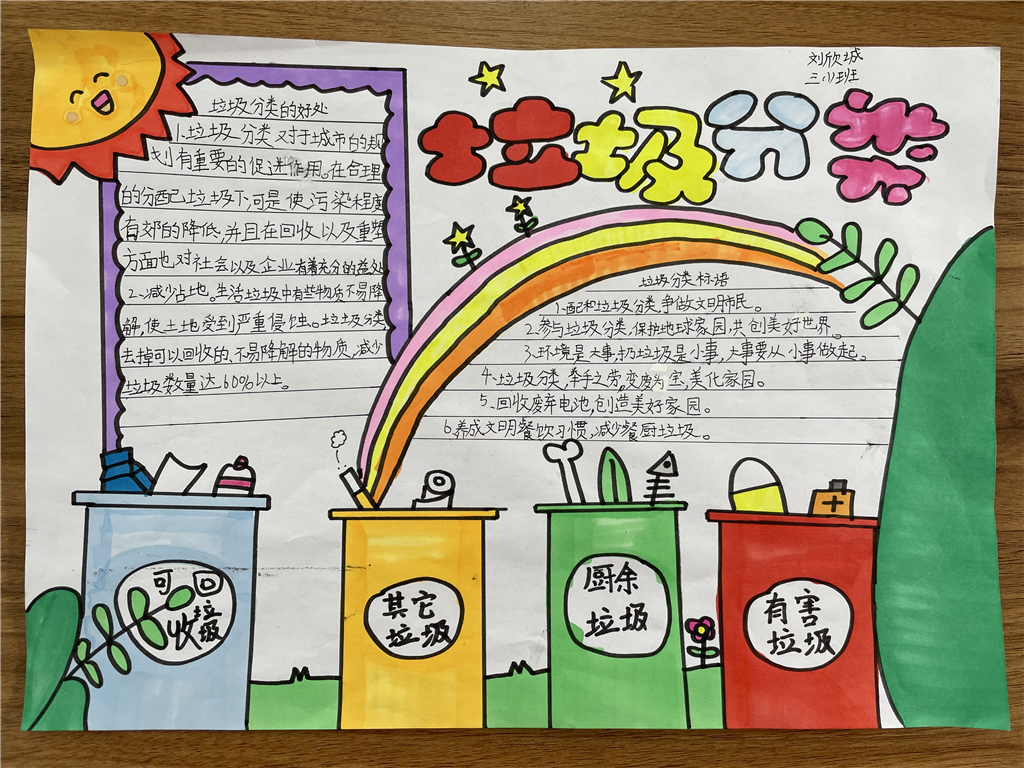 刘欣城
三(1)班
垃圾分类
垃圾分类的好处
1.垃圾分类对于城市的规
划有重要的促进作用。在合理
的分配垃圾下,可是使污染程度
有效的降低,并且在回收以及重塑
方面也对社会以及企业有着充分的益处
2、减少占地。生活垃圾中有些物质不易降
解,使土地受到严重侵蚀。垃圾分类
去掉可以回收的、不易降解的物质,减少
垃圾数量达60%以上。
垃圾分类标语
1、配和垃圾分类,争做文明市民。
2.参与垃圾分类,保护地球家园,共创美好世界。
3、环境是大事,扔垃圾是小事,大事要从小事做起。
4、垃圾分类,牵手之劳,变废为宝,美化家园。
5、回收废弃电池,创造美好家园。
6.养成文明餐饮习惯,减少餐厨垃圾。
可回
收垃圾
其它
垃圾
厨余
垃圾
有害
垃圾